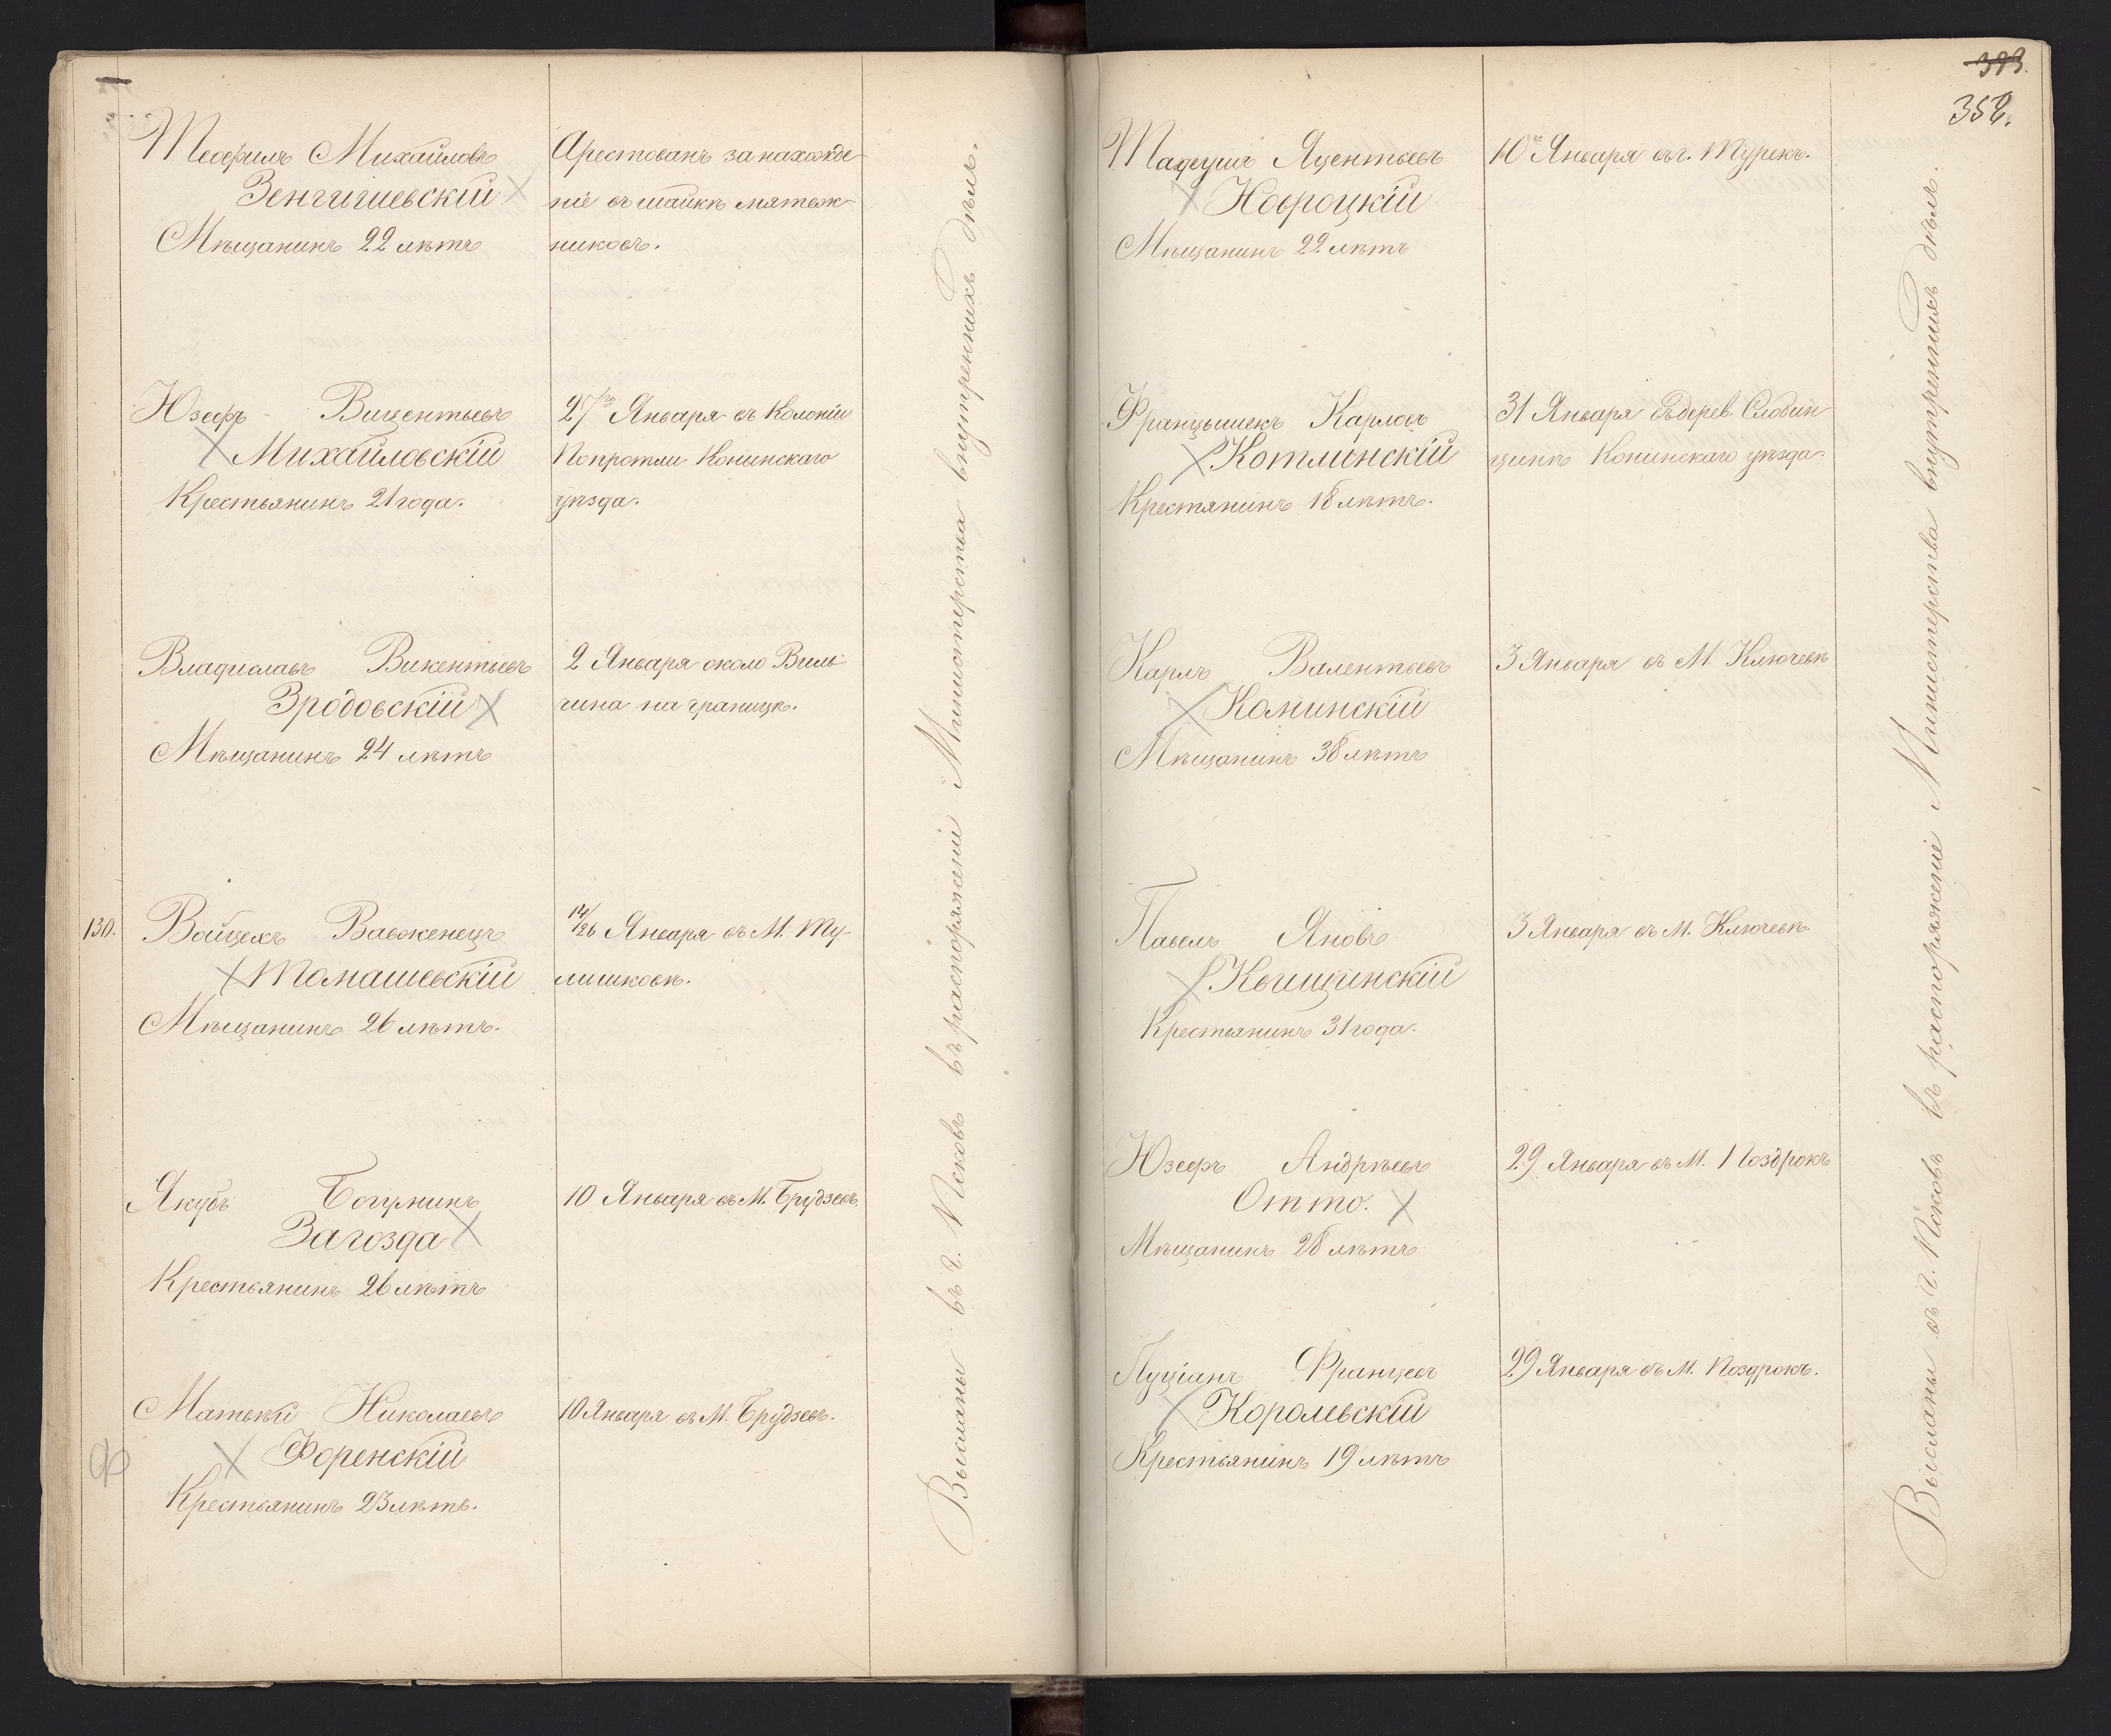 Теофилъ Михайловъ
Зенгигшевскій
Мѣщанинъ 22 лѣтъ
Арестованъ за нахожде-
ніе въ шайкѣ мятеж-
никовъ.
Юзефъ Вицентьевъ
Михайловскій
Крестьянинъ 21 года.
27го Января въ Колоніи
Попротли Конинскаго
уѣзда.
Владиславъ Викентьевъ
Бродовскій
Мѣщанинъ 24 лѣтъ
2 Января около Виль-
чина на границѣ.
130.
Войцехъ Вавженецъ
Томашевскій
Мѣщанинъ 26 лѣтъ.
14/26 Января въ М. Ту-
лишковѣ.
Якубъ Богумилъ
Загозда
Крестьянинъ 26 лѣтъ
10 Января въ М. Брудзевъ.
Матвѣй Николаевъ
Форенскій
Крестьянинъ 23 лѣтъ.
10 Января въ М. Брудзевъ.
Высланы въ г. Псковъ въ распоряженіе Министерства внутреннихъ дѣлъ.
393.
358.
Тадеушъ Яцентьевъ
Новроцкій
Мѣщанинъ 22 лѣтъ
10го Января въ г. Турекъ.
Францышекъ Карловъ
Котлинскій
Крестянинъ 18 лѣтъ.
31 Января въ дерев. Слобин-
цинѣ Конинскаго уѣзда.
Карлъ Валентьевъ
Коминскій
Мѣщанинъ 38 лѣтъ
3 Января въ М. Ключевѣ
Павелъ Яновъ
Квищинскій
Крестьянинъ 31 года.
3 Января въ М. Ключевѣ.
Юзефъ Андрѣевъ
Отто.
Мѣщанинъ 28 лѣтъ
29 Января въ М. Поздрокъ
Луціанъ Францевъ
Королевскій
Крестьянинъ 19 лѣтъ
29 Января въ М. Поздрокъ.
Высланы въ г. Псковъ въ распоряженіе Министерства внутреннихъ дѣлъ.